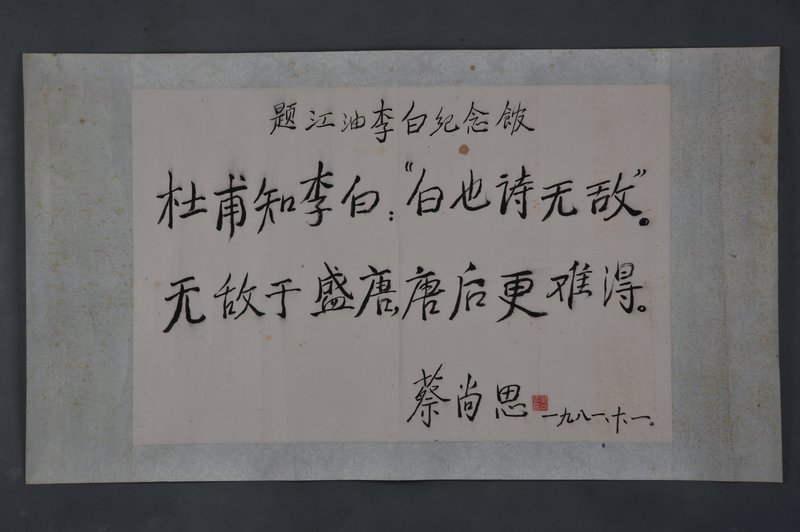 题江油李白纪念馆
杜甫知李白：“白也诗无敌”。
无敌于盛唐，唐后更难得。
蔡尚思 一九八一、十、一。